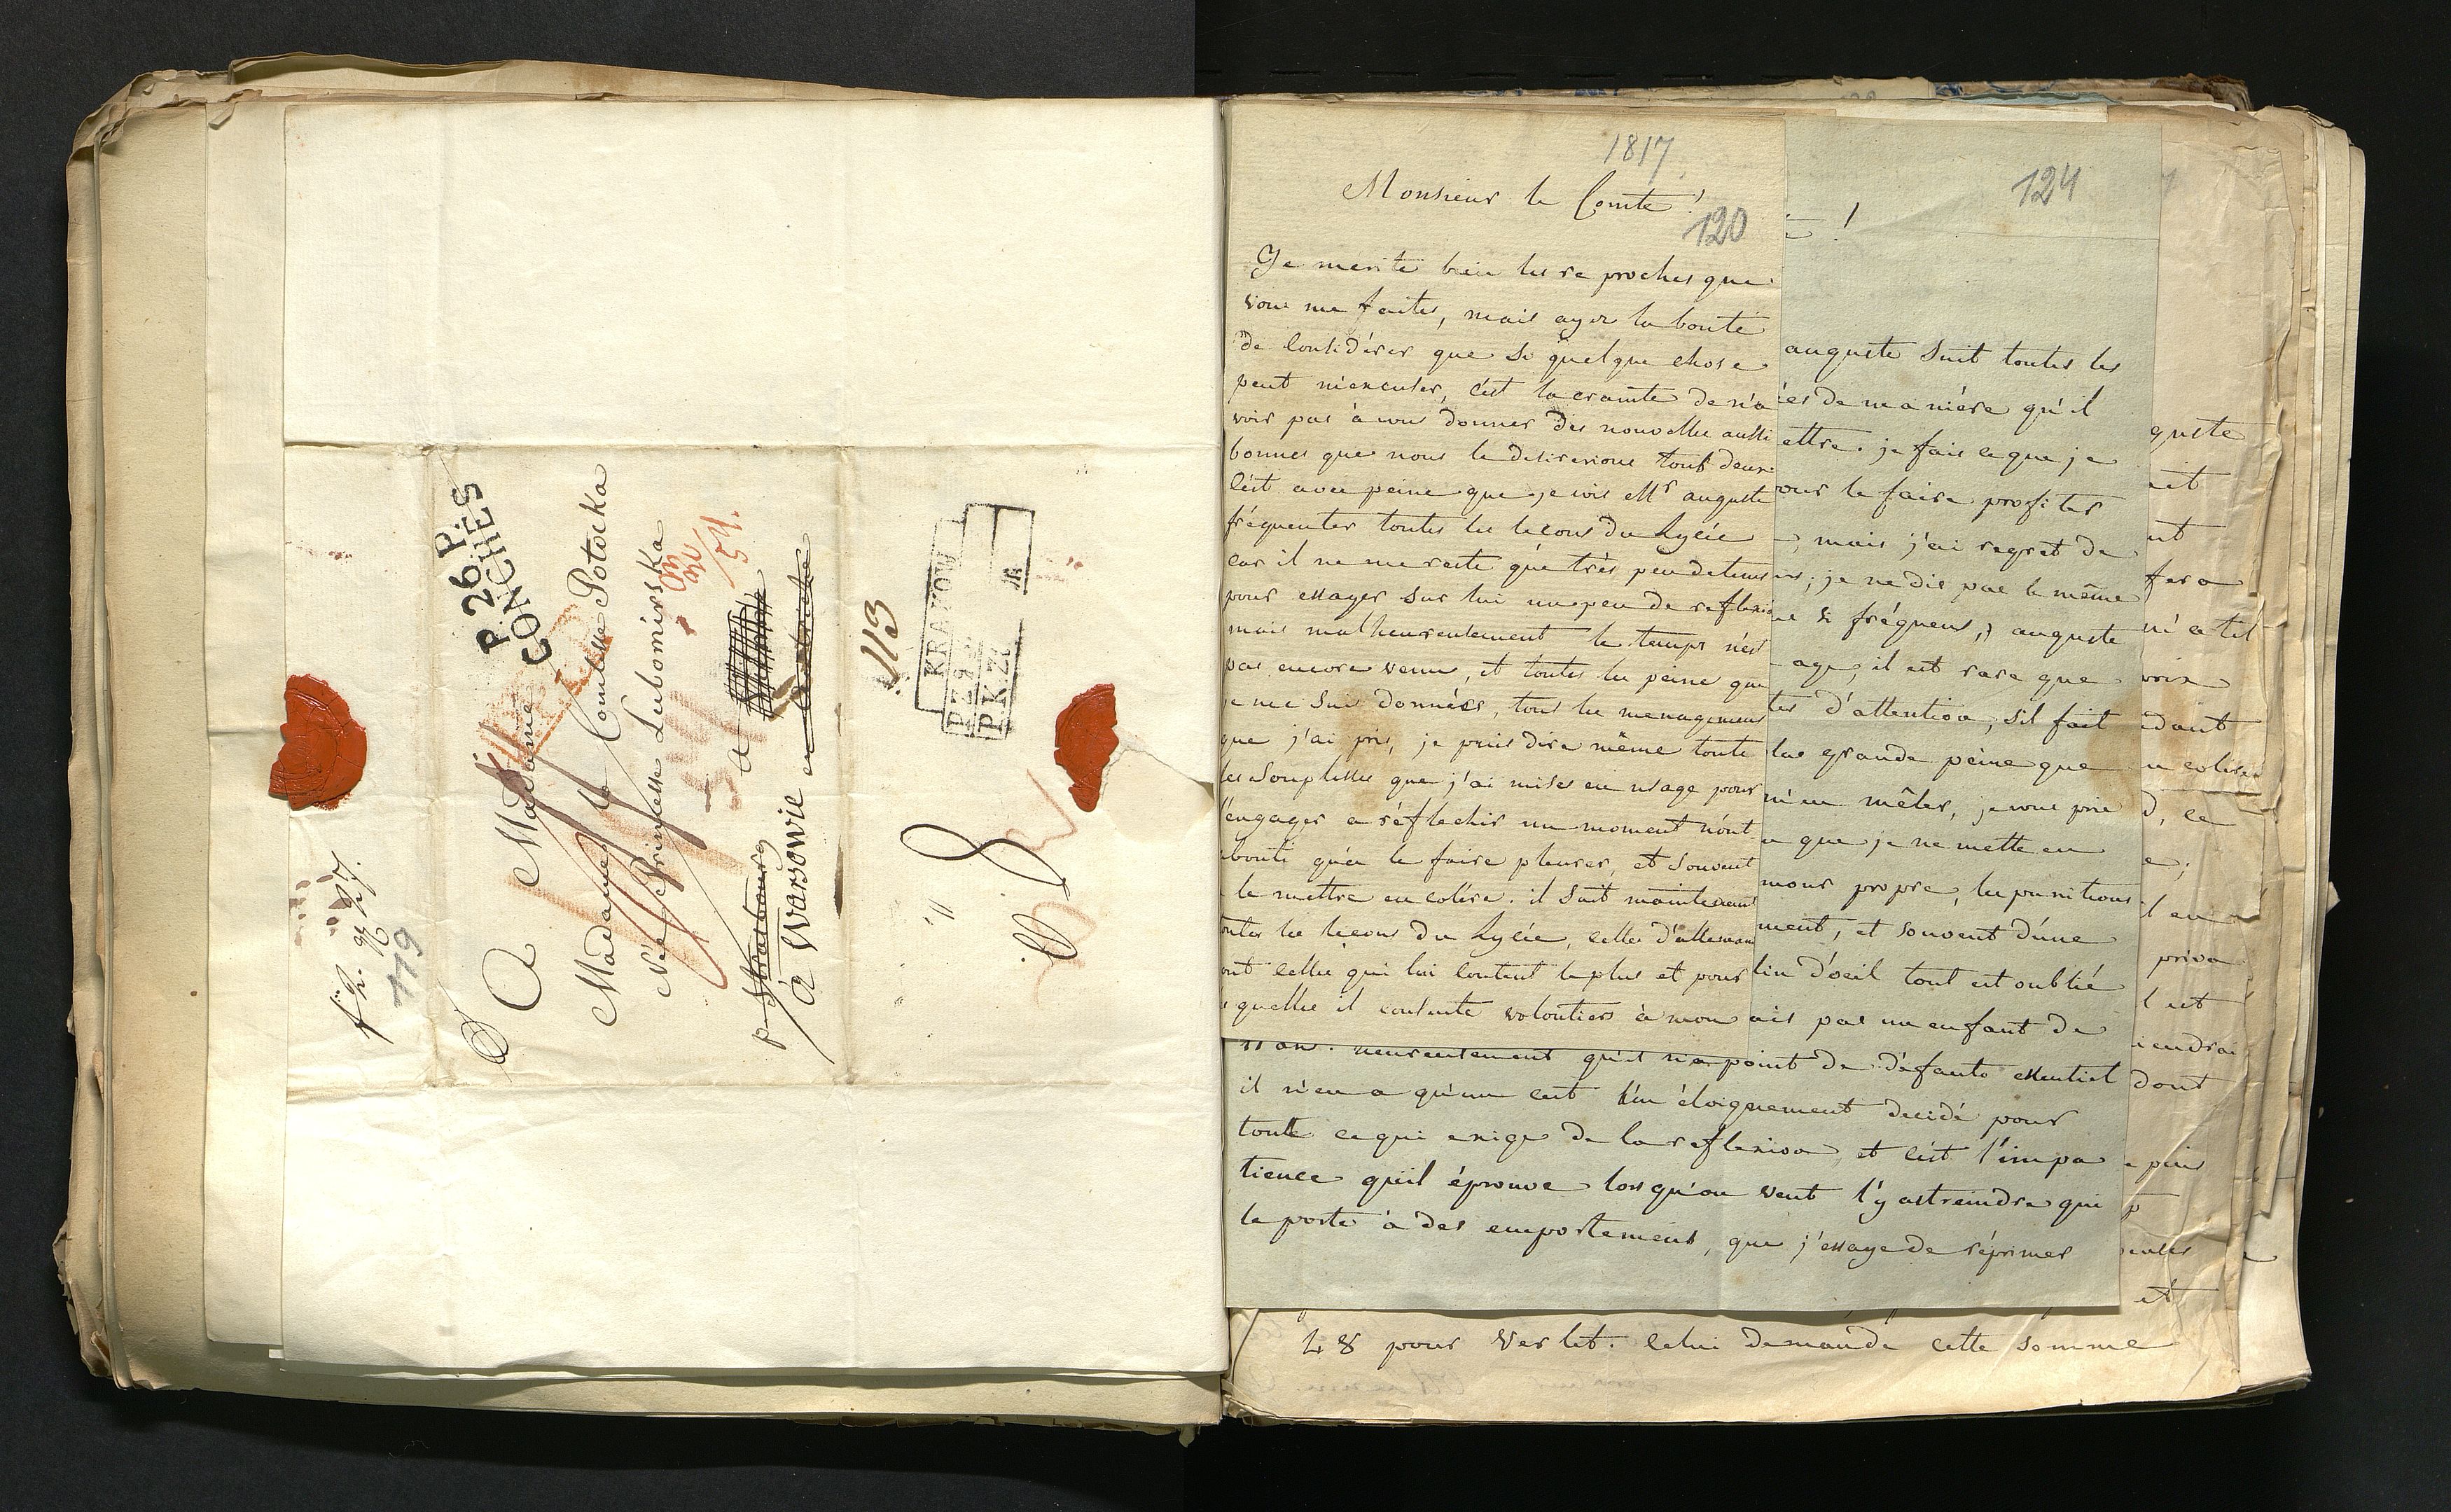 P. 26 P.
CONCHES
A Madame
Madame la Comtesse Potocka
Née Princesse Lubomirska
a
p. Strasbourg
à Warsowie en Autriche
113
KRAKOW
119
1817
Monsieur le Comte !
120
Je merite bien les reproches que
vous me faites, mais ayez la bonté
de considérer que si quelque chose
peut m'excuser, c'est la crainte de n'a
voir pas à vous donner des nouvelles aussi
bonnes que nous le desirerions tout deux.
c'est avec peine que je vois Mr auguste
fréquenter toutes les leçons du Lycée
car il ne me reste que très peu de tems
pour essayer sur lui un peu de reflexio
mais malheureusement le temps n'est
pas encore venu, et toutes les peine que
je me suis données, tous les menagemens
que j'ai pris, je puis dire même toute
les souplesses que j'ai mises en usage pour
l'engager a réflechir un moment n'ont
abouti qu'a le faire pleurer, et souvent
a le mettre en colère. il suit maintenant
outes les leçons du Lycée, celles d'alleman
ont celles qui lui coutent le plus et pour
quelles il consulte volontiers à mon
124
!
auguste suit toutes les
es de manière qu'il
ettre. je fais ce que je
our le faire profiter
, mais j'ai regret de
s; je ne dis pas le même
e si fréquens,) auguste
age, il est rare que
tes d'attention, s'il fait
lus grande peine que
m'en mêler, je vous prie
a que je ne mette en
mour propre, les punitions
ment, et souvent d'une
lin d'oeil tout est oublié
ais pas un enfant de
11 ans. heureusement qu'il n'a point de défauts essentiel
il n'en a qu'un cest l'un éloignement decidé pour
toute ce qui exige de la reflexion, et c'est l'impa
tience qu'il éprouve lors qu'on veut l'y astreindre qui
le porte à des emportemens, que j'essaye de réprimer
guste
ait
nt
fera
ni a tel
voix
dant
en colère
d, ce
e;
l en
priva
l est
iendrai
dont
e puis
et
48 pour Verlet. Celui demande cette somme